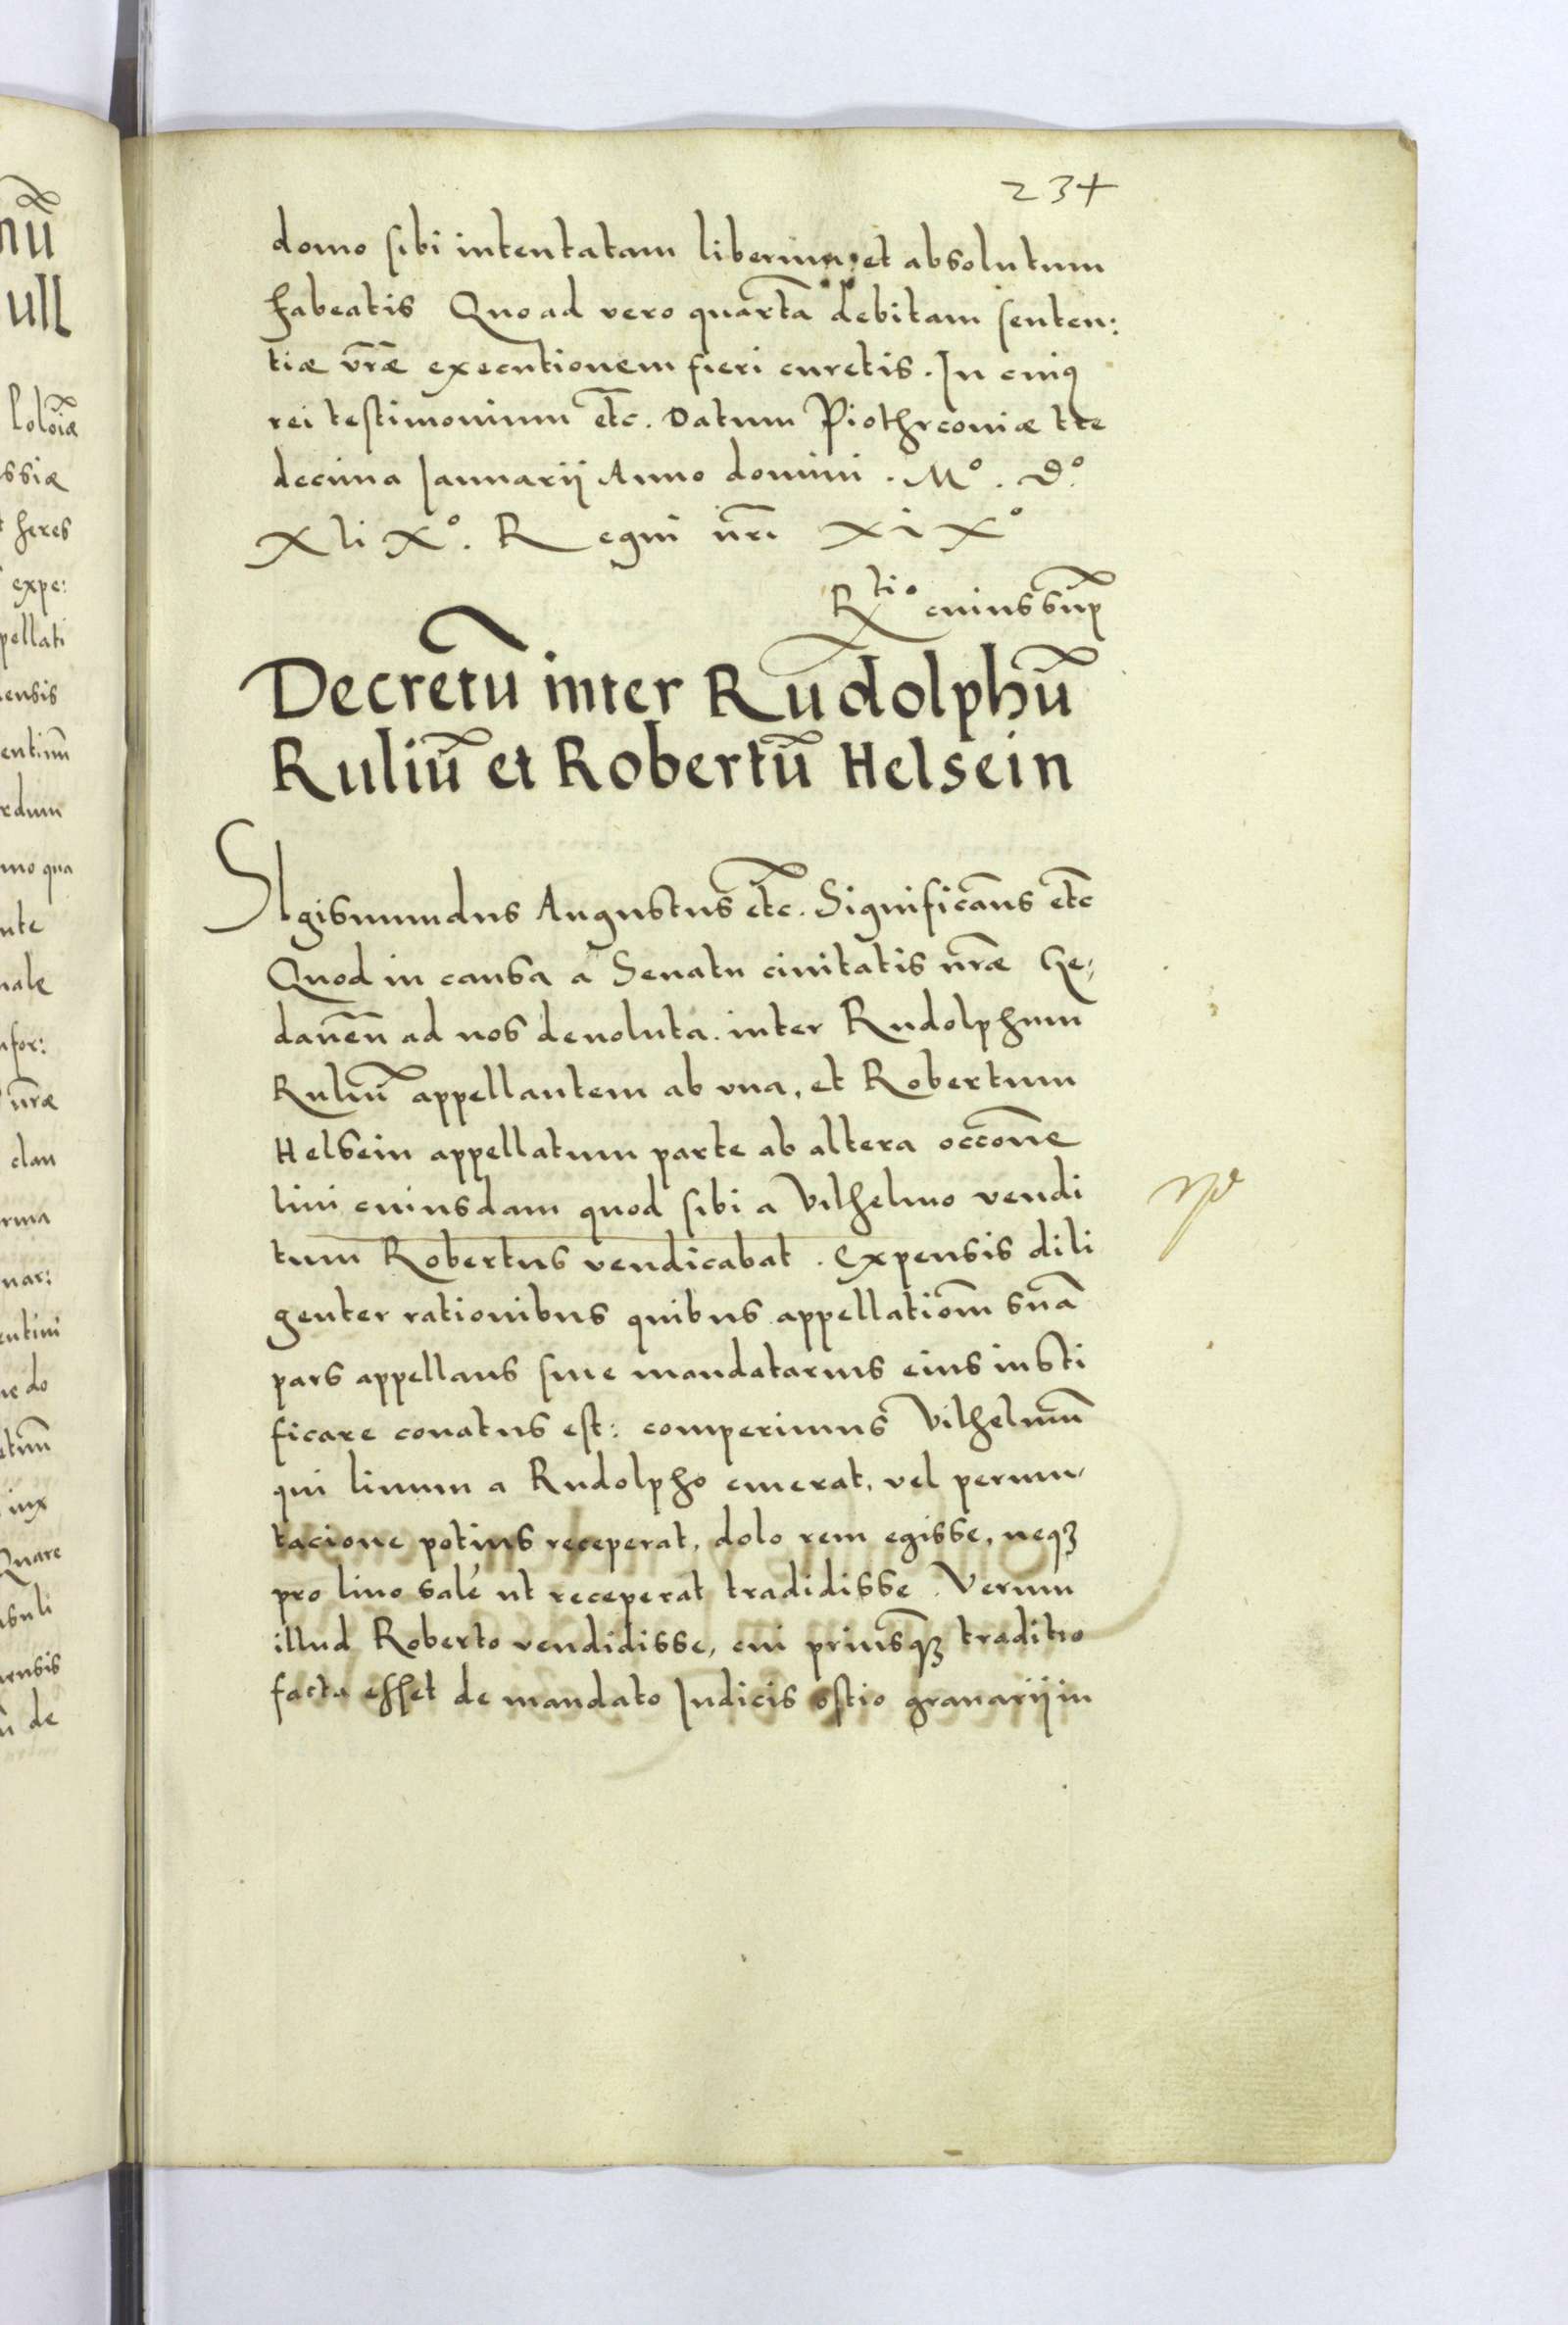 234
domo sibi intentatam liberum et absolutum
habeatis Quo ad vero quartā debitam senten:
tiæ vr̄æ executionem fieri curetis. In cuiꝰ
rei testimonium etc̄. Datum Piothrconiæ tre
decima Januarii Anno domini. Mº. Dº.
XliXº. Regni nr̄i XiXº
Rtiº cuius sup̄
Decretū inter Rudolphū
Ruliū et Robertū Helsein
SIgismundus Augustus etc̄. Significam̄s etc̄
Quod in causa a Senatu civitatis nr̄æ Ge,
daneñ ad nos devoluta. inter Rudolphum
Ruliū appellantem ab una, et Robertum
Helsein appellatum parte ab altera occōne
lini cuiusdam quod sibi a Vilhelmo vendi
tum Robertus vendicabat. Expensis dili
genter rationibus quibus appellatiōm suā
pars appellans sive mandatarius eius iusti
ficare conatus est: comperimus Vilhelmū
qui linum a Rudolpho emerat, vel permu,
tacione potius receperat, dolo rem egisse, neqꝫ
pro lino salē ut receperat tradidisse. Verum
illud Roberto vendidisse, cui priusqꝫ traditio
facta esset de mandato Judicis ostio granarii in
nū
ull
Poloīæ
ssiæ
heres
expe:
pellati
ensis
entiuʒ
rdum
mo qua
nte
nale
nfor:
nr̄æ
clau
rma
nar:
entini
ne do
etum̄
iux
Quare
suli
ensis
de